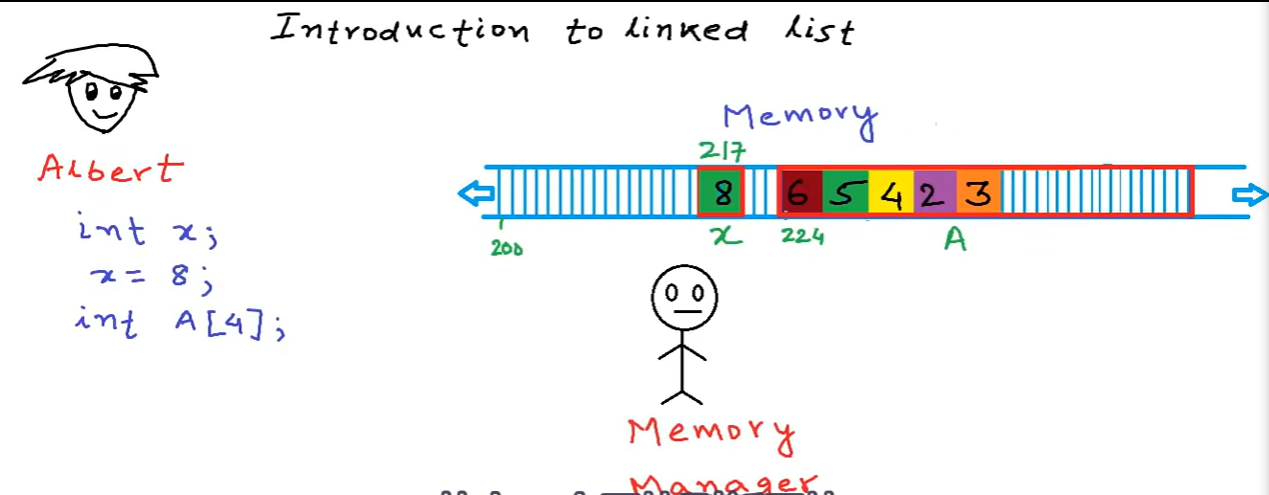 Introduction to linked list
Albert
int x;
x = 8;
int A[4];
Memory
217
8 6 5 4 2 3
200 x 224 A
Memory
Manager